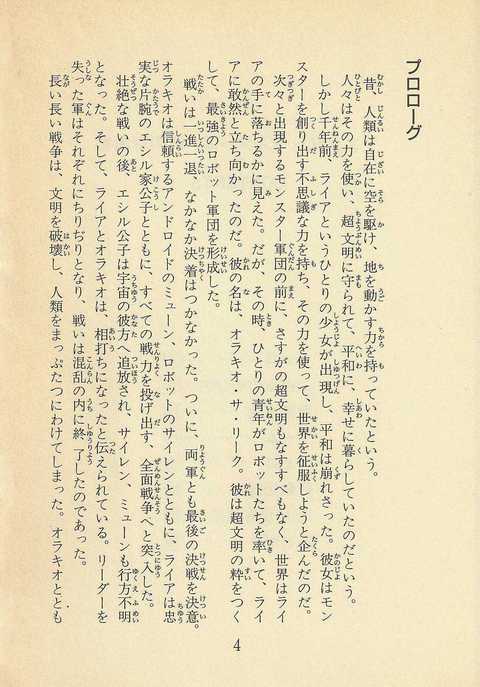 プロローグ
昔、人類は自在に空を駆け、地を動かす力を持っていたという。
人々はその力を使い、超文明に守られて、平和に、幸せに暮らしていたのだという。
しかし千年前、ライアというひとりの少女が出現し、平和は崩れさった。彼女はモン
スターを創り出す不思議な力を持ち、その力を使って、世界を征服しようと企んだのだ。
次々と出現するモンスター軍団の前に、さすがの超文明もなすすべもなく、世界はライ
アの手に落ちるかに見えた。だが、その時、ひとりの青年がロボットたちを率いて、ライ
アに敢然と立ち向かったのだ。彼の名は、オラキオ・サ・リーク。彼は超文明の粋をつく
して、最強のロボット軍団を形成した。
戦いは一進一退、なかなか決着はつかなかった。ついに、両軍とも最後の決戦を決意。
オラキオは信頼するアンドロイドのミューン、ロボットのサイレンとともに、ライアは忠
実な片腕のエシル家公子とともに、すべての戦力を投げ出す、全面戦争へと突入した。
壮絶な戦いの後、エシル公子は宇宙の彼方へ追放され、サイレン、ミューンも行方不明
となった。そして、ライアとオラキオは、相打ちになったと伝えられている。リーダーを
失った軍はそれぞれにちりぢりとなり、戦いは混乱の内に終了したのであった。
長い長い戦争は、文明を破壊し、人類をまっぷたつにわけてしまった。オラキオととも
4